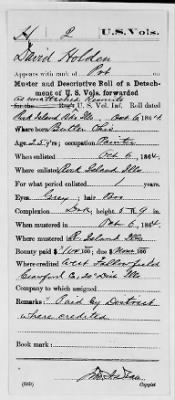 H 2 U.S.Vols.
David Holden
Appears with rank of Pvt
Muster and Descriptive Roll of a Detach-
ment of U. S. Vols. forwarded
as unattached Recruits
U. S. Vol. Inf. Roll dated
Rock Island Bks Ills. Oct 6, 1864.
Where born Butler Ohio
Age 25 y'rs; occupation
When enlisted Oct 6, 1864.
Where enlisted Rock Island Ills
For what period enlisted 1 years.
Eyes Grey; hair Bro
Complexion Drk; height 5 ft 9 in.
When mustered in Oct 6, 1864.
Where mustered in R. Island Ills
Bounty paid $ 100; due $ 100
Where credited West Fallowfield
Crawford Co, 20" Dist
Company to which assigned
Remarks: Paid by District
where credited
Book mark:
Copyist.